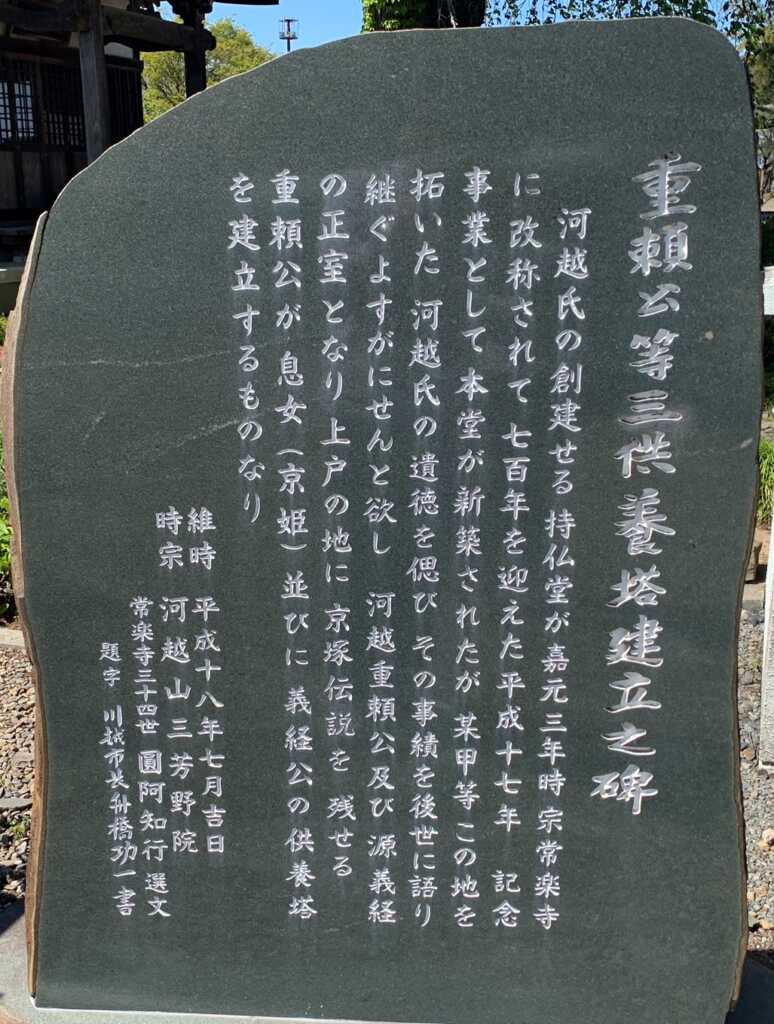 重頼公等三供養塔建立之碑
河越氏の創建せる 持仏堂が嘉元三年時宗常楽寺
に改称されて 七百年を迎えた平成十七年 記念
事業として本堂が新築されたが 某甲等 この地を
拓いた 河越氏の遺徳を偲び その事績を後世に語り
継ぐよすがにせんと欲し 河越重頼公及び 源義経
の正室となり上戸の地に京塚伝説を 残せる
重頼公が息女(京姫)並びに 義経公の供養塔
を建立するものなり
維時 平成十八年七月吉日
時宗 河越山三芳野院
常楽寺三十四世 圓阿知行 選文
題字 川越市長舟橋功一書